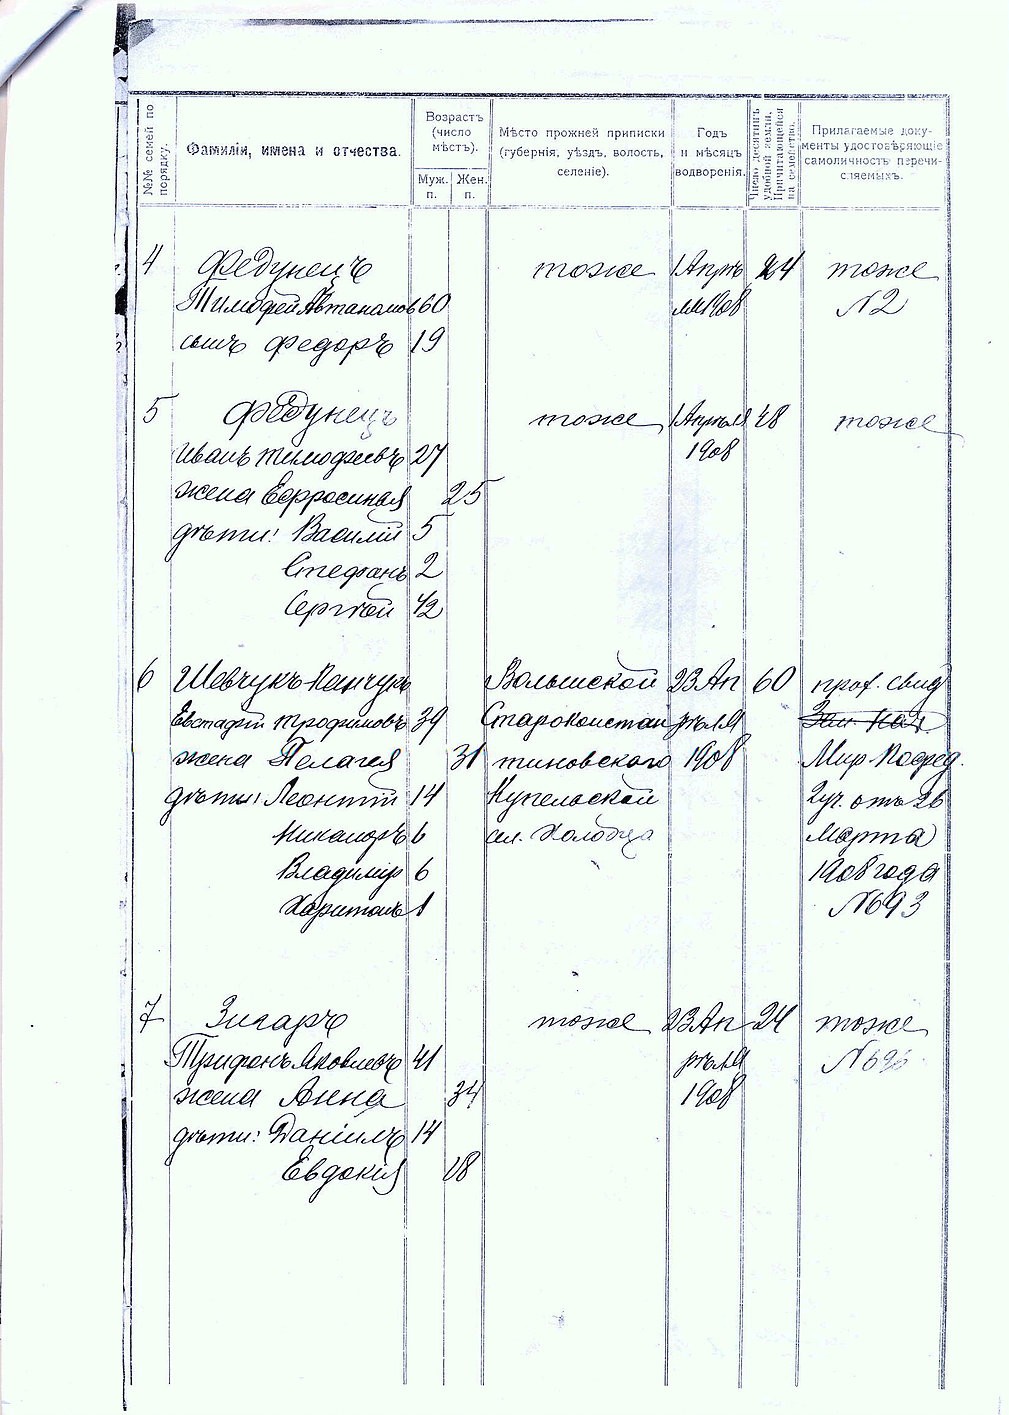 №№ семей по порядку.
Фамиліи, имена и отчества.
Возрастъ (число мѣстъ).
Муж. п.
Жен. п.
Мѣсто прожней приписки (губернія, уѣздъ, волость, селеніе).
Годъ и мѣсяцъ водворенія.
Число десятинъ удобной земли, Причитающейся на семейство.
Прилагаемые документы удостовѣряющіе самоличность перечисляемыхъ.
4 Федунецъ тоже 1 Апрѣ 24 тоже
Тимофей Автаномов 60 ля 1908 №2
сынъ Федоръ 19
5 Федунецъ тоже 1 Апрѣля 48 тоже
Иванъ Тимофеевъ 27 1908
жена Евфросинья 25
дѣти: Василій 5
Стефанъ 2
Сергѣй 1/2
6 Шевчукъ- Волынской 23 Ап 60 прох. свид
Евстафій Трофимовъ 39 Староконстан рѣля
жена Пелагея 31 тиновского 1908 Мир. Посред.
дѣти: Леонтій 14 Купельской 2 уч. отъ 26
Никаноръ 6 сел. Холодца Марта
Владимір 6 1908 года
Харитонъ 1 №693
7 Зигаръ тоже 23 Ап 24 тоже
Трифонъ Яковлевъ 41 рѣля №696
жена Анна 34 1908
дѣти: Даніилъ 14
Евдокія 18